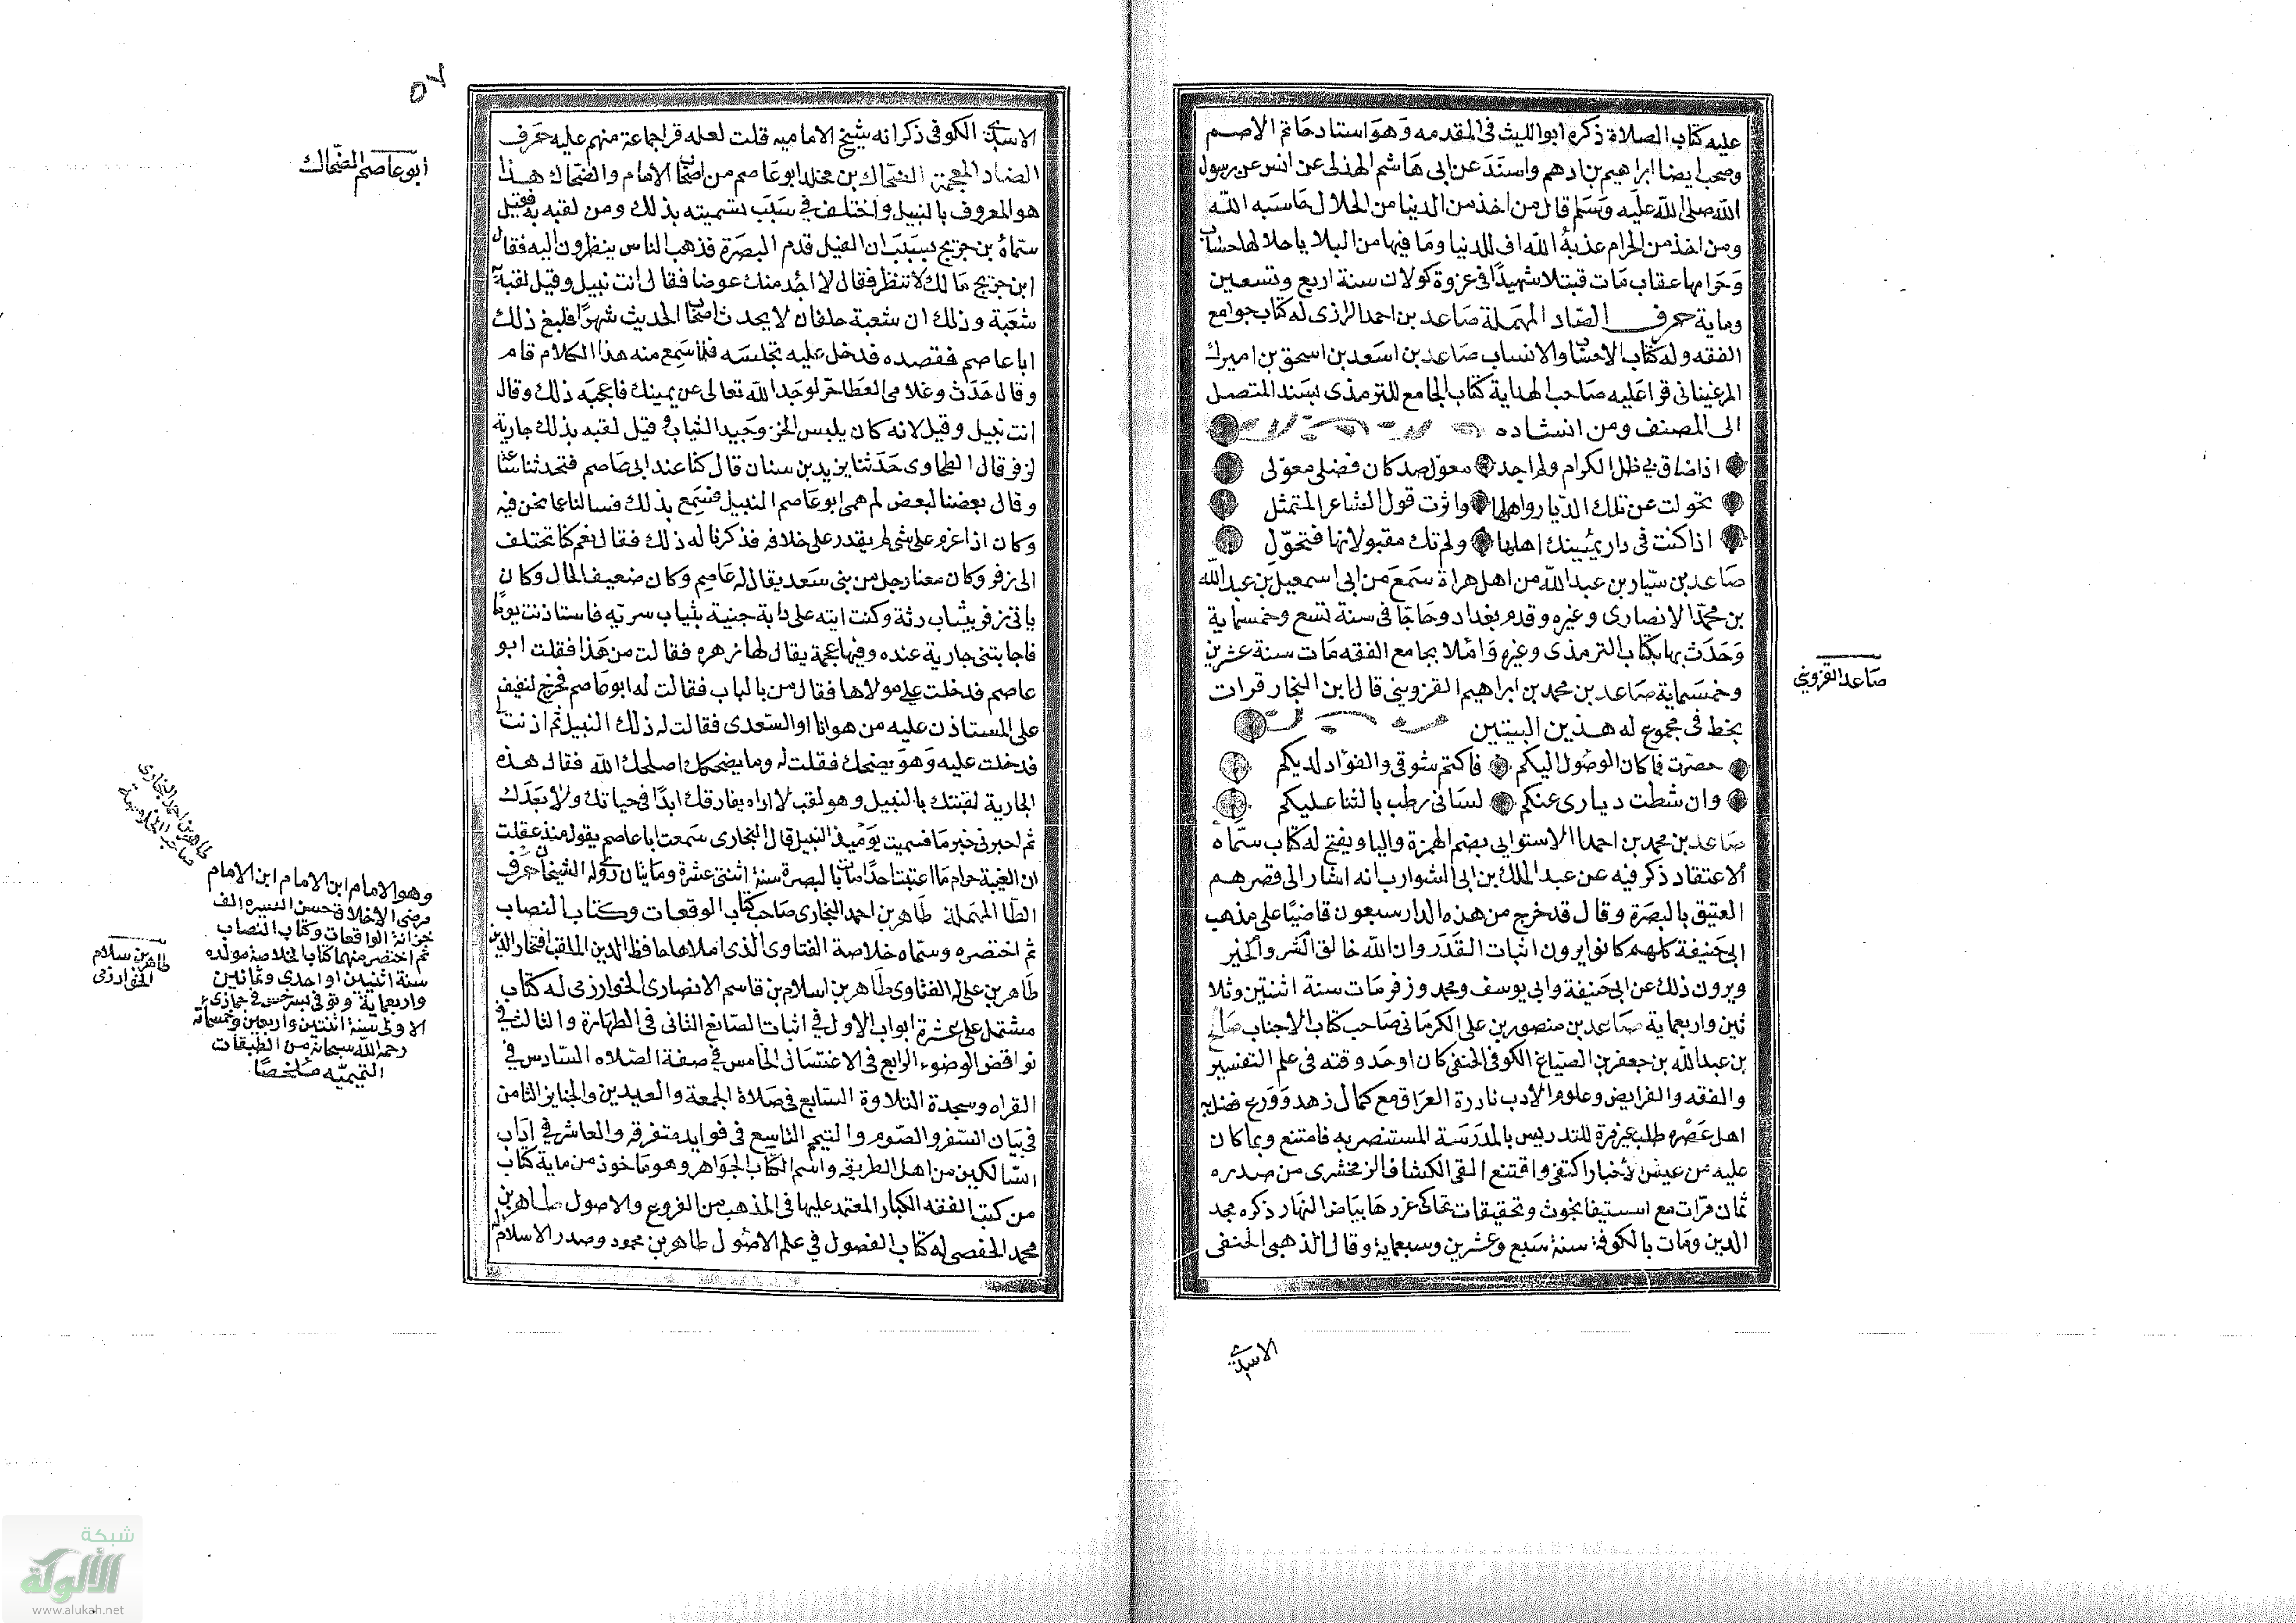 عليه كتاب الصلاة ذكره ابو الليث فى المقدمه وهو استاد حاتم الاصم
وصحب ايضا ابراهيم بن ادهم واسند عن ابى هاشم الهذلى عن انس عن رسول
الله صلى الله عليه وسلم قال من اخذ من الدنيا من الحلال حاسبه الله
ومن اخذ من الحرام عذبه الله اف للدنيا وما فيها من البلايا حلالها حساب
وحرامها عقاب مات قبتلا شهيدا فى غزوة كولان سنة اربع وتسعين
وماية حرف الصاد المهملة صاعد بن احمد الرازى له كتاب جوامع
الفقه وله كتاب الاحساب والانساب صاعد بن اسعد بن اسحق بن اميرك
المرغينانى قرا عليه صاحب الهداية كتاب الجامع للترمذى بسند المتصل
الى المصنف ومن انشاده
اذا ضاق بى ظل الكرام ولم اجد معول صد كان فضلى معولى
تحولت عن تلك الديار واهلها واثرت قول الشاعر المتمثل
اذا كنت فى دار يهينك اهلها ولم تك مقبولا بها فتحول
صاعد بن سيار بن عبد الله من اهل هراة سمع من ابى اسمعيل بن عبد الله
بن محمد الانصارى وغيره وقدم بغداد وحاجا فى سنة تسع وخمسماية
وحدث بها بكتاب الترمذى وغيره واملا بجامع الفقه مات سنة عشرين
وخمسماية صاعد بن محمد بن ابراهيم القزوينى قال ابن النجار قرات
بخط فى مجموع له هذين البيتين
حضرت فما كان الوصول اليكم فاكتم شوقى والفؤاد لديكم
وان شطت ديارى عنكم لسانى رطب بالثنا عليكم
صاعد بن محمد بن احمد الاستوايى بضم الهمزة واليا ويفتح له كتاب سماه
الاعتقاد ذكر فيه عن عبد الملك بن ابى الشوارب انه اشار الى قصرهم
العتيق بالبصرة وقال قد خرج من هذه الدار سبعون قاضيا على مذهب
ابى حنيفة كلهم كانوا يرون اثبات القدر وان الله خالق الشر والخير
ويرون ذلك عن ابى حنيفة وابى يوسف ومحمد وزفر مات سنة اثنتين وثلا
ثين واربعماية صاعد بن منصور بن على الكرمانى صاحب كتاب الاجناب صالح
بن عبد الله بن جعفر بن الصباغ الكوفى الحنفى كان اوحد وقته فى علم التفسير
والفقه والفرايض وعلوم الادب نادرة العراق مع كمال زهد وورع فضل به
اهل عصره طلب غير مرة للتدريس بالمدرسة المستنصريه فامتنع وبما كان
عليه من عيش الاخبار اكتفى واقتنع القى الكشاف الزمخشرى من صدره
ثمان مرات مع استيفا بحوث وتحقيقات تحاكى غررها بياض النهار ذكره مجد
الدين ومات بالكوفة سنة سبع وعشرين وسبعماية وقال الذهبى الحنفى
الاسدى
صاعد القزوينى
٥٧
الاسدى الكوفى ذكر انه شيخ الاماميه قلت لعله قرا جماعة منهم عليه حرف
الضاد المعجمة الضحاك بن مخلد ابو عاصم من اصحاب الامام والضحاك هذا
هو المعروف بالنبيل واختلف فى سبب تسميته بذلك ومن لقبه به فقيل
سماه بن جريج بسبب ان الفيل قدم البصرة فذهب الناس ينظرون اليه فقال
ابن جريج مالك لا تنظر فقال لا اجد منك عوضا فقال انت نبيل وقيل لقبه
شعبة وذلك ان شعبة حلف ان لا يحدث اصحاب الحديث شهرا فبلغ ذلك
ابا عاصم فقصده فدخل عليه بمجلسه فلما سمع منه هذا الكلام قام
وقال حدث وغلامى العطا حر لوجه الله تعالى عن يمينك فاعجبه ذلك وقال
انت نبيل وقيل لانه كان يلبس الخز وجيد الثياب وقيل لقبه بذلك جارية
لزفر قال الطحاوى حدثنا يزيد بن سنان قال كنا عند ابى عاصم فتحدثنا ساعة
وقال بعضنا لبعض لم سمى ابو عاصم النبيل فسمع بذلك فسالنا عما نحن فيه
وكان اذا عزم على شى لم يقدر على خلافه فذكرنا له ذلك فقال نعم كنا نختلف
الى زفر وكان معنا رجل من بنى سعد يقال له عاصم وكان ضعيف الحال وكان
ياتى زفر بثياب رثة وكنت اتيه على دابة جنية بثياب سرية فاستاذنت يوما
فاجابتنى جارية عنده وفيها عجمة يقال لها زهره فقالت من هذا فقلت ابو
عاصم فدخلت على مولاها فقال من بالباب فقالت له ابو عاصم فخرج لنفيف
على المستاذن عليه من هو انا او السعدى فقالت له ذلك النبيل ثم اذنت لى
فدخلت عليه وهو يضحك فقلت له وما يضحكك اصلحك الله فقال هذه
الجارية لقبتك بالنبيل وهو لقب لا اراه يفارقك ابدا فى حياتك ولا بعدك
ثم اخبرنى خبر ما فسميت يوميذ النبيل قال البخارى سمعت ابا عاصم يقول منذ عقلت
ان الغيبة حرام ما اغتبت احدا مات بالبصرة سنة اثنتى عشرة ومايتان روى له الشيخان حرف
الطا المهملة طاهر بن احمد البخارى صاحب كتاب الوقعات وكتاب النصاب
ثم اختصره وسماه خلاصة الفتاوى الذى املاها حافظ الدين الملقب افتخار الدين
طاهر بن على له الفتاوى طاهر بن اسلام بن قاسم الانصارى الخوارزمى له كتاب
مشتمل على عشرة ابواب الاول فى اثبات الصانع الثانى فى الطهارة والثالث فى
نواقض الوضوء الرابع فى الاغتسال الخامس فى صفة الصلاه السادس فى
القراه وسجدة التلاوة السابع فى صلاة الجمعة والعيدين والجنايز الثامن
فى بيان السفر والصوم والتيمم التاسع فى فوايد متفرقه والعاشر فى اداب
السالكين من اهل الطريقه واسم الكتاب الجواهر وهو ماخوذ من ماية كتاب
من كتب الفقه الكبار المعتمد عليها فى المذهب من الفروع والاصول طاهر بن
محمد الحفصى له كتاب الفصول فى علم الاصول طاهر بن محمود وصدر الاسلام
ابو عاصم الضحاك
طاهر بن احمد البخارى
صاحب الخلاصة
وهو الامام ابن الامام ابن الامام
مرضى الاخلاق حسن السيره الف
خزانة الواقعات وكتاب النصاب
ثم اختصر منهما كتاب الخلاصة مولده
سنة اثنين او احدى وثمانين
واربعماية وتوفى بسرخس فى جمادى
الاولى سنة اثنتين واربعين وخمسمائة
رحمه الله سبحانه من الطبقات
التميميه ملخصا
طاهر بن سلام
الخوارزمى
شبكة
الألوكة
www.alukah.net